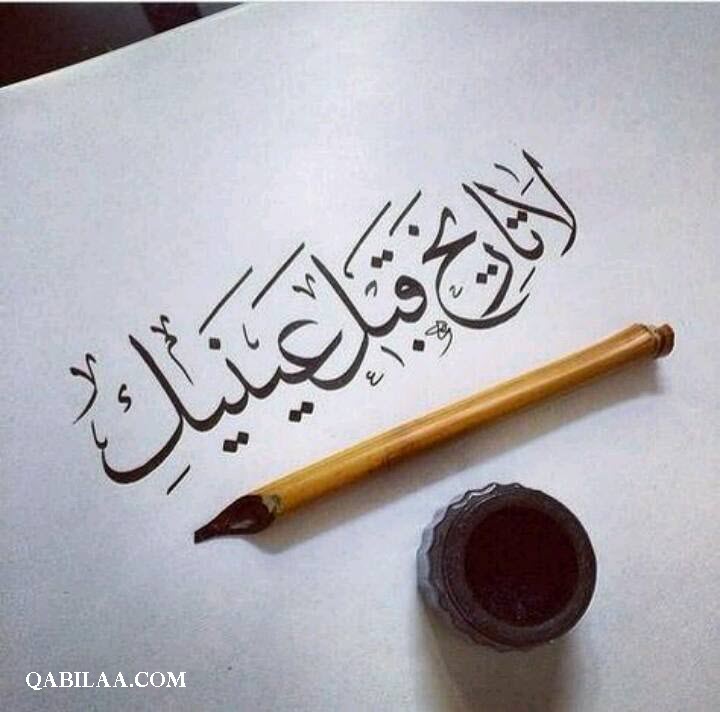 لا تاريخ قبل عينيكِ
QABILAA.COM